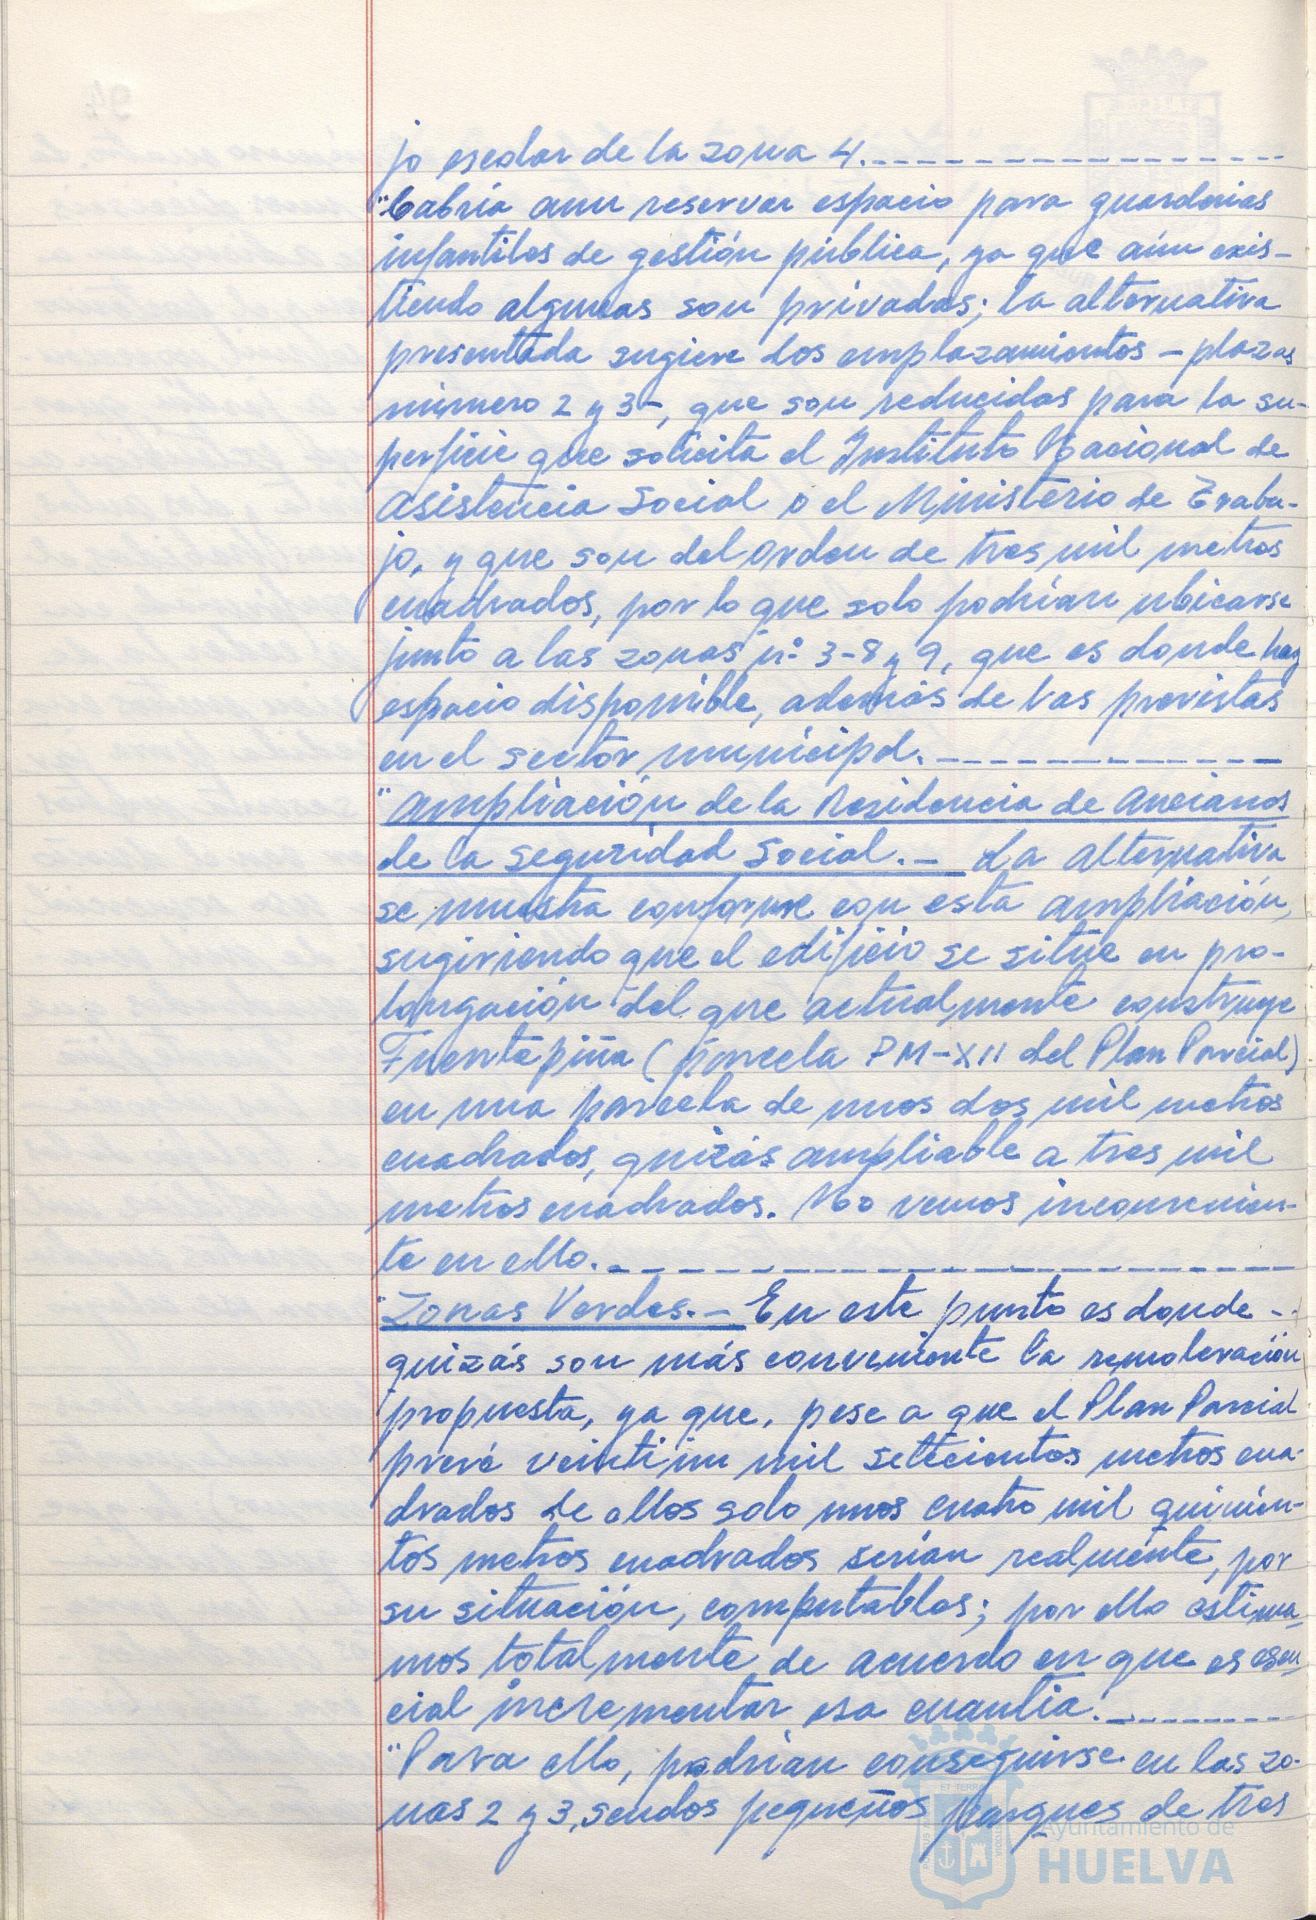 jo escolar de la zona 4.
"Cabría aun reservar espacio para guarderias
infantiles de gestión pública, ya que aún exis-
tiendo algunas son privadas; la alternativa
presentada sugiere dos emplazamientos - plazas
número 2 y 3 -, que son reducidas para la su-
perficie que solicita el Instituto Nacional de
Asistencia Social o el Ministerio de Traba-
jo, y que son del orden de tres mil metros
cuadrados, por lo que solo podrían ubicarse
junto a las zonas nº 3-8 y 9, que es donde hay
espacio disponible, además de las previstas
en el sector municipal.
"Ampliación de la Residencia de Ancianos
de la Seguridad Social.- La alternativa
se muestra conforme con esta ampliación,
sugiriendo que el edificio se sitúe en pro-
longación del que actualmente construye
Fuentepiña (parcela PM-XII del Plan Parcial)
en una parcela de unos dos mil metros
cuadrados, quizás ampliable a tres mil
metros cuadrados. No vemos inconvenien-
te en ello.
"Zonas Verdes.- En este punto es donde -
quizás son más conveniente la remodelación
propuesta, ya que, pese a que el Plan Parcial
prevé veintiun mil setecientos metros cua-
drados de ellos solo unos cuatro mil quinien-
tos metros cuadrados serían realmente, por
su situación, computables; por ello estima-
mos totalmente de acuerdo en que es esen-
cial incrementar esa cuantía.
"Para ello, podrían conseguirse en las zo-
nas 2 y 3, sendos pequeños parques de tres
Ayuntamiento de
HUELVA